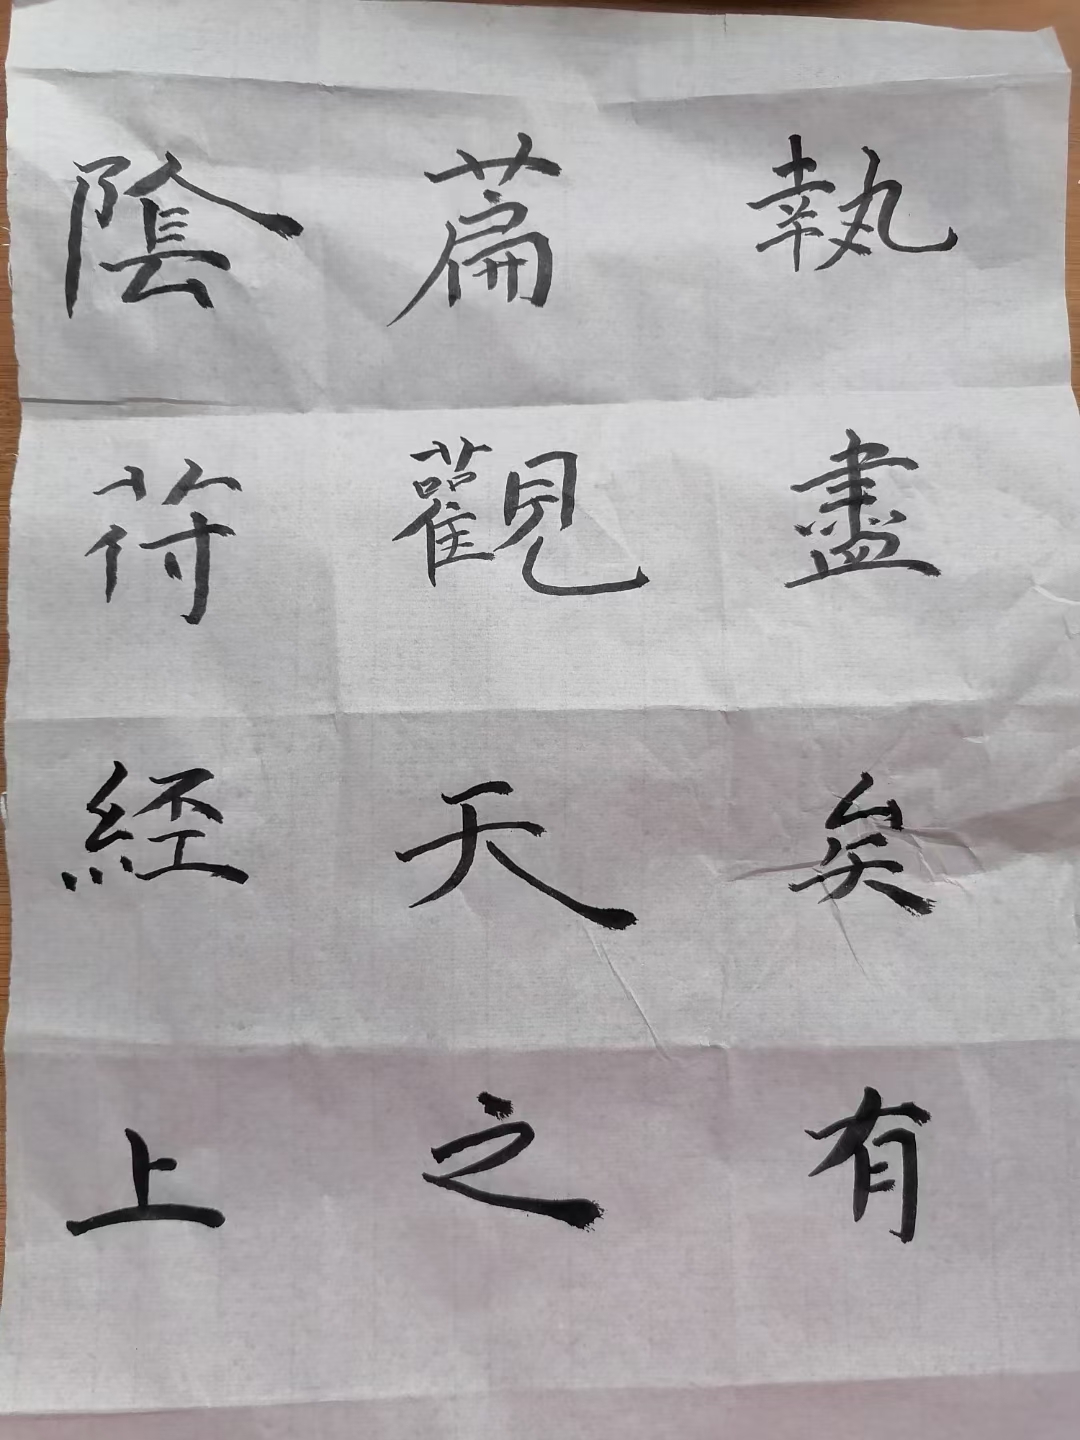 陰符經上
篇觀天之
執盡矣有